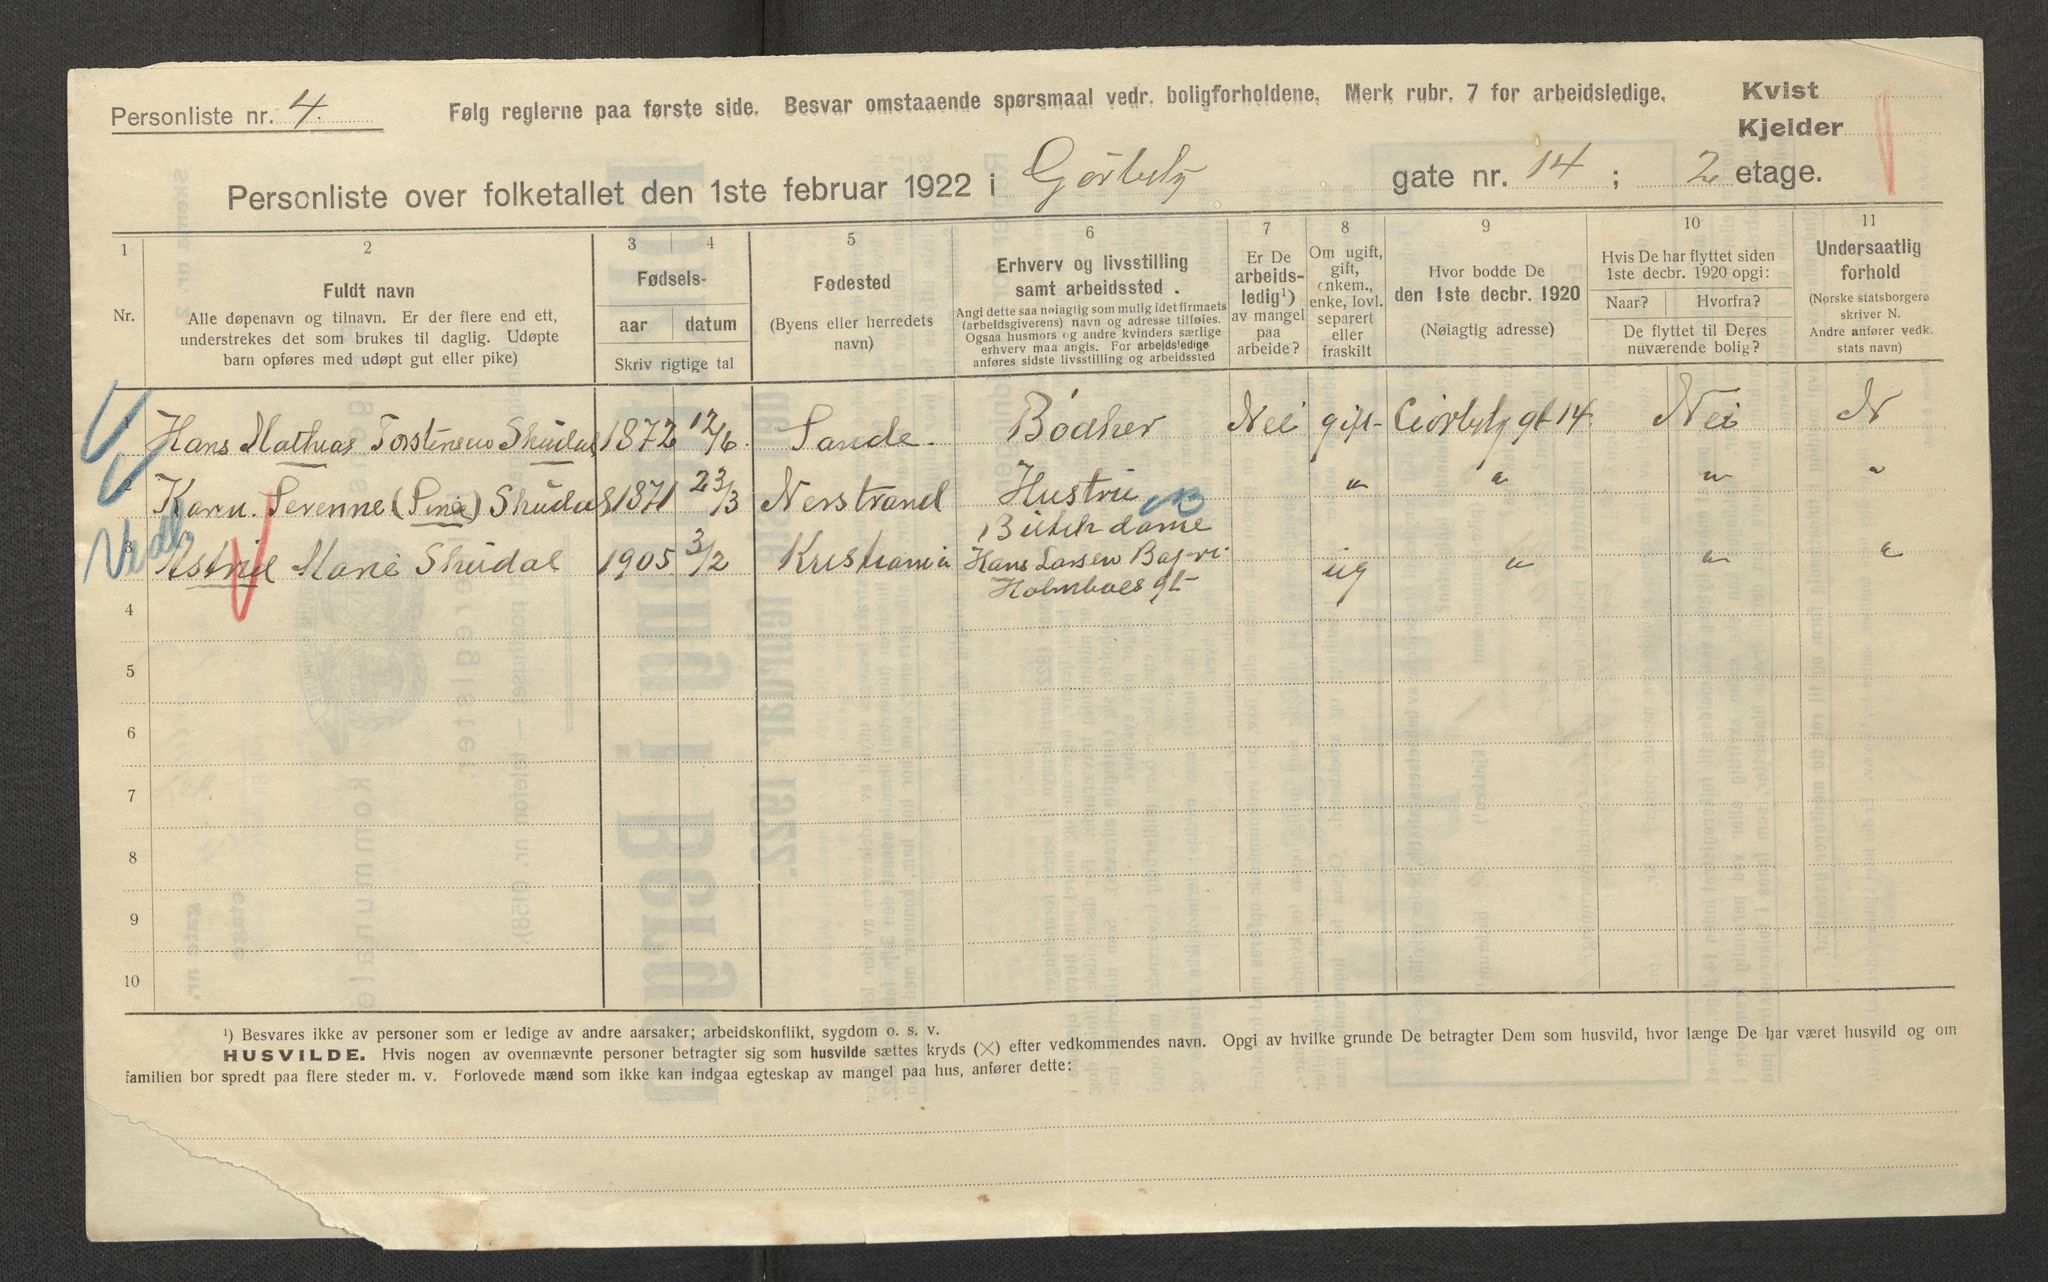 Personliste nr. 4.
Følg reglerne paa første side. Besvar omstaaende spørsmaal vedr. boligforholdene. Merk rubr. 7 for arbeidsledige.
Kvist
Kjelder
Personliste over folketallet den 1ste februar 1922 i Görbely gate nr. 14 ; 2 etage.
1 2 3 4 5 6 7 8 9 10 11
Nr.
Fuldt navn
Alle døpenavn og tilnavn. Er der flere end ett,
understrekes det som brukes til daglig. Udøpte
barn opføres med udøpt gut eller pike)
Fødsels-
aar datum
Skriv rigtige tal
Fødested
(Byens eller herredets
navn)
Erhverv og livsstilling
samt arbeidssted .
Angi dette saa nøiagtig som mulig idet firmaets
(arbeidsgiverens) navn og adresse tilføies.
Ogsaa husmors og andre kvinders særlige
erhverv maa angis. For arbeidsledige
anføres sidste livsstilling og arbeidssted
Er De
arbeids-
ledig¹)
av mangel
paa
arbeide?
Om ugift,
gift,
enkem.,
enke, lovl.
separert
eller
fraskilt
Hvor bodde De
den 1ste decbr. 1920
(Nøiagtig adresse)
Hvis De har flyttet siden
1ste decbr. 1920 opgi:
Naar? Hvorfra?
De flyttet til Deres
nuværende bolig?
Undersaatlig
forhold
(Norske statsborgere
skriver N.
Andre anfører vedk.
stats navn)
Hans Mathias Torstensen Skudal 1872 12/6 Sande. Bödker Nei gift Görbely gt 14. Nei N
2 Karen Serenne (Sina) Skudal 1871 23/3 Nerstrand Hustru " " " "
3 Astrid Marie Skudal 1905 3/2 Kristiania Butik dame ug " " "
Hans Larsen
Holmboes gt
4
5
6
7
8
9
10
¹) Besvares ikke av personer som er ledige av andre aarsaker; arbeidskonflikt, sygdom o. s. v.
HUSVILDE. Hvis nogen av ovennævnte personer betragter sig som husvilde sættes kryds (×) efter vedkommendes navn. Opgi av hvilke grunde De betragter Dem som husvild, hvor længe De har været husvild og om
familien bor spredt paa flere steder m. v. Forlovede mænd som ikke kan indgaa egteskap av mangel paa hus, anfører dette: